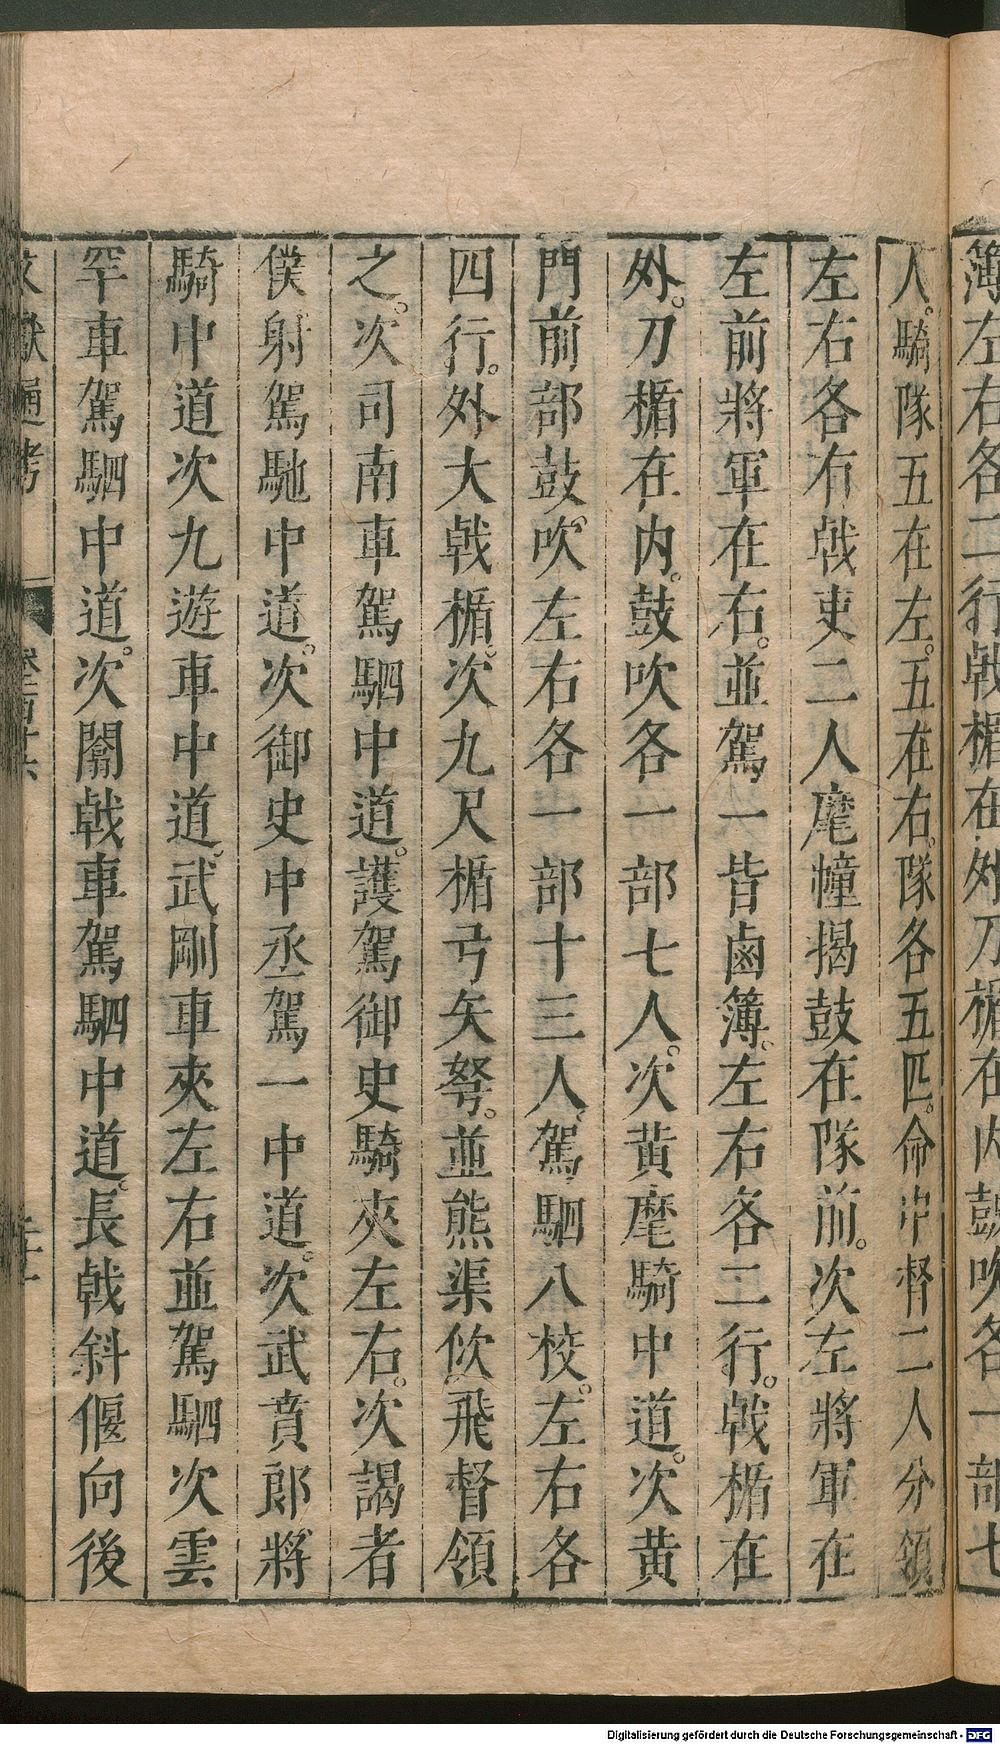 簿左右各二行戟楯在外刀楯在內鼓吹各一部七
人。騎隊五在左。五在右。隊各五匹。命中督二人分領
左右各有戟吏二人麾幢揭鼓在隊前。次左將軍在
左前將軍在右。並駕一皆鹵簿。左右各二行。戟楯在
外。刀楯在內。鼓吹各一部七人。次黃麾騎中道。次黃
門前部鼓吹左右各一部十三人駕駟八校。左右各
四行。外大戟楯。次九尺楯弓矢弩。並熊渠佽飛督領
之。次司南車駕駟中道。護駕御史騎夾左右。次謁者
僕射駕馳中道。次御史中丞駕一中道。次武賁郎將
騎中道次九遊車中道。武剛車夾左右並駕駟次雲
罕車駕駟中道。次闟戟車駕駟中道。長戟斜偃向後
文獻通考
Digitalisierung gefördert durch die Deutsche Forschungsgemeinschaft - DFG